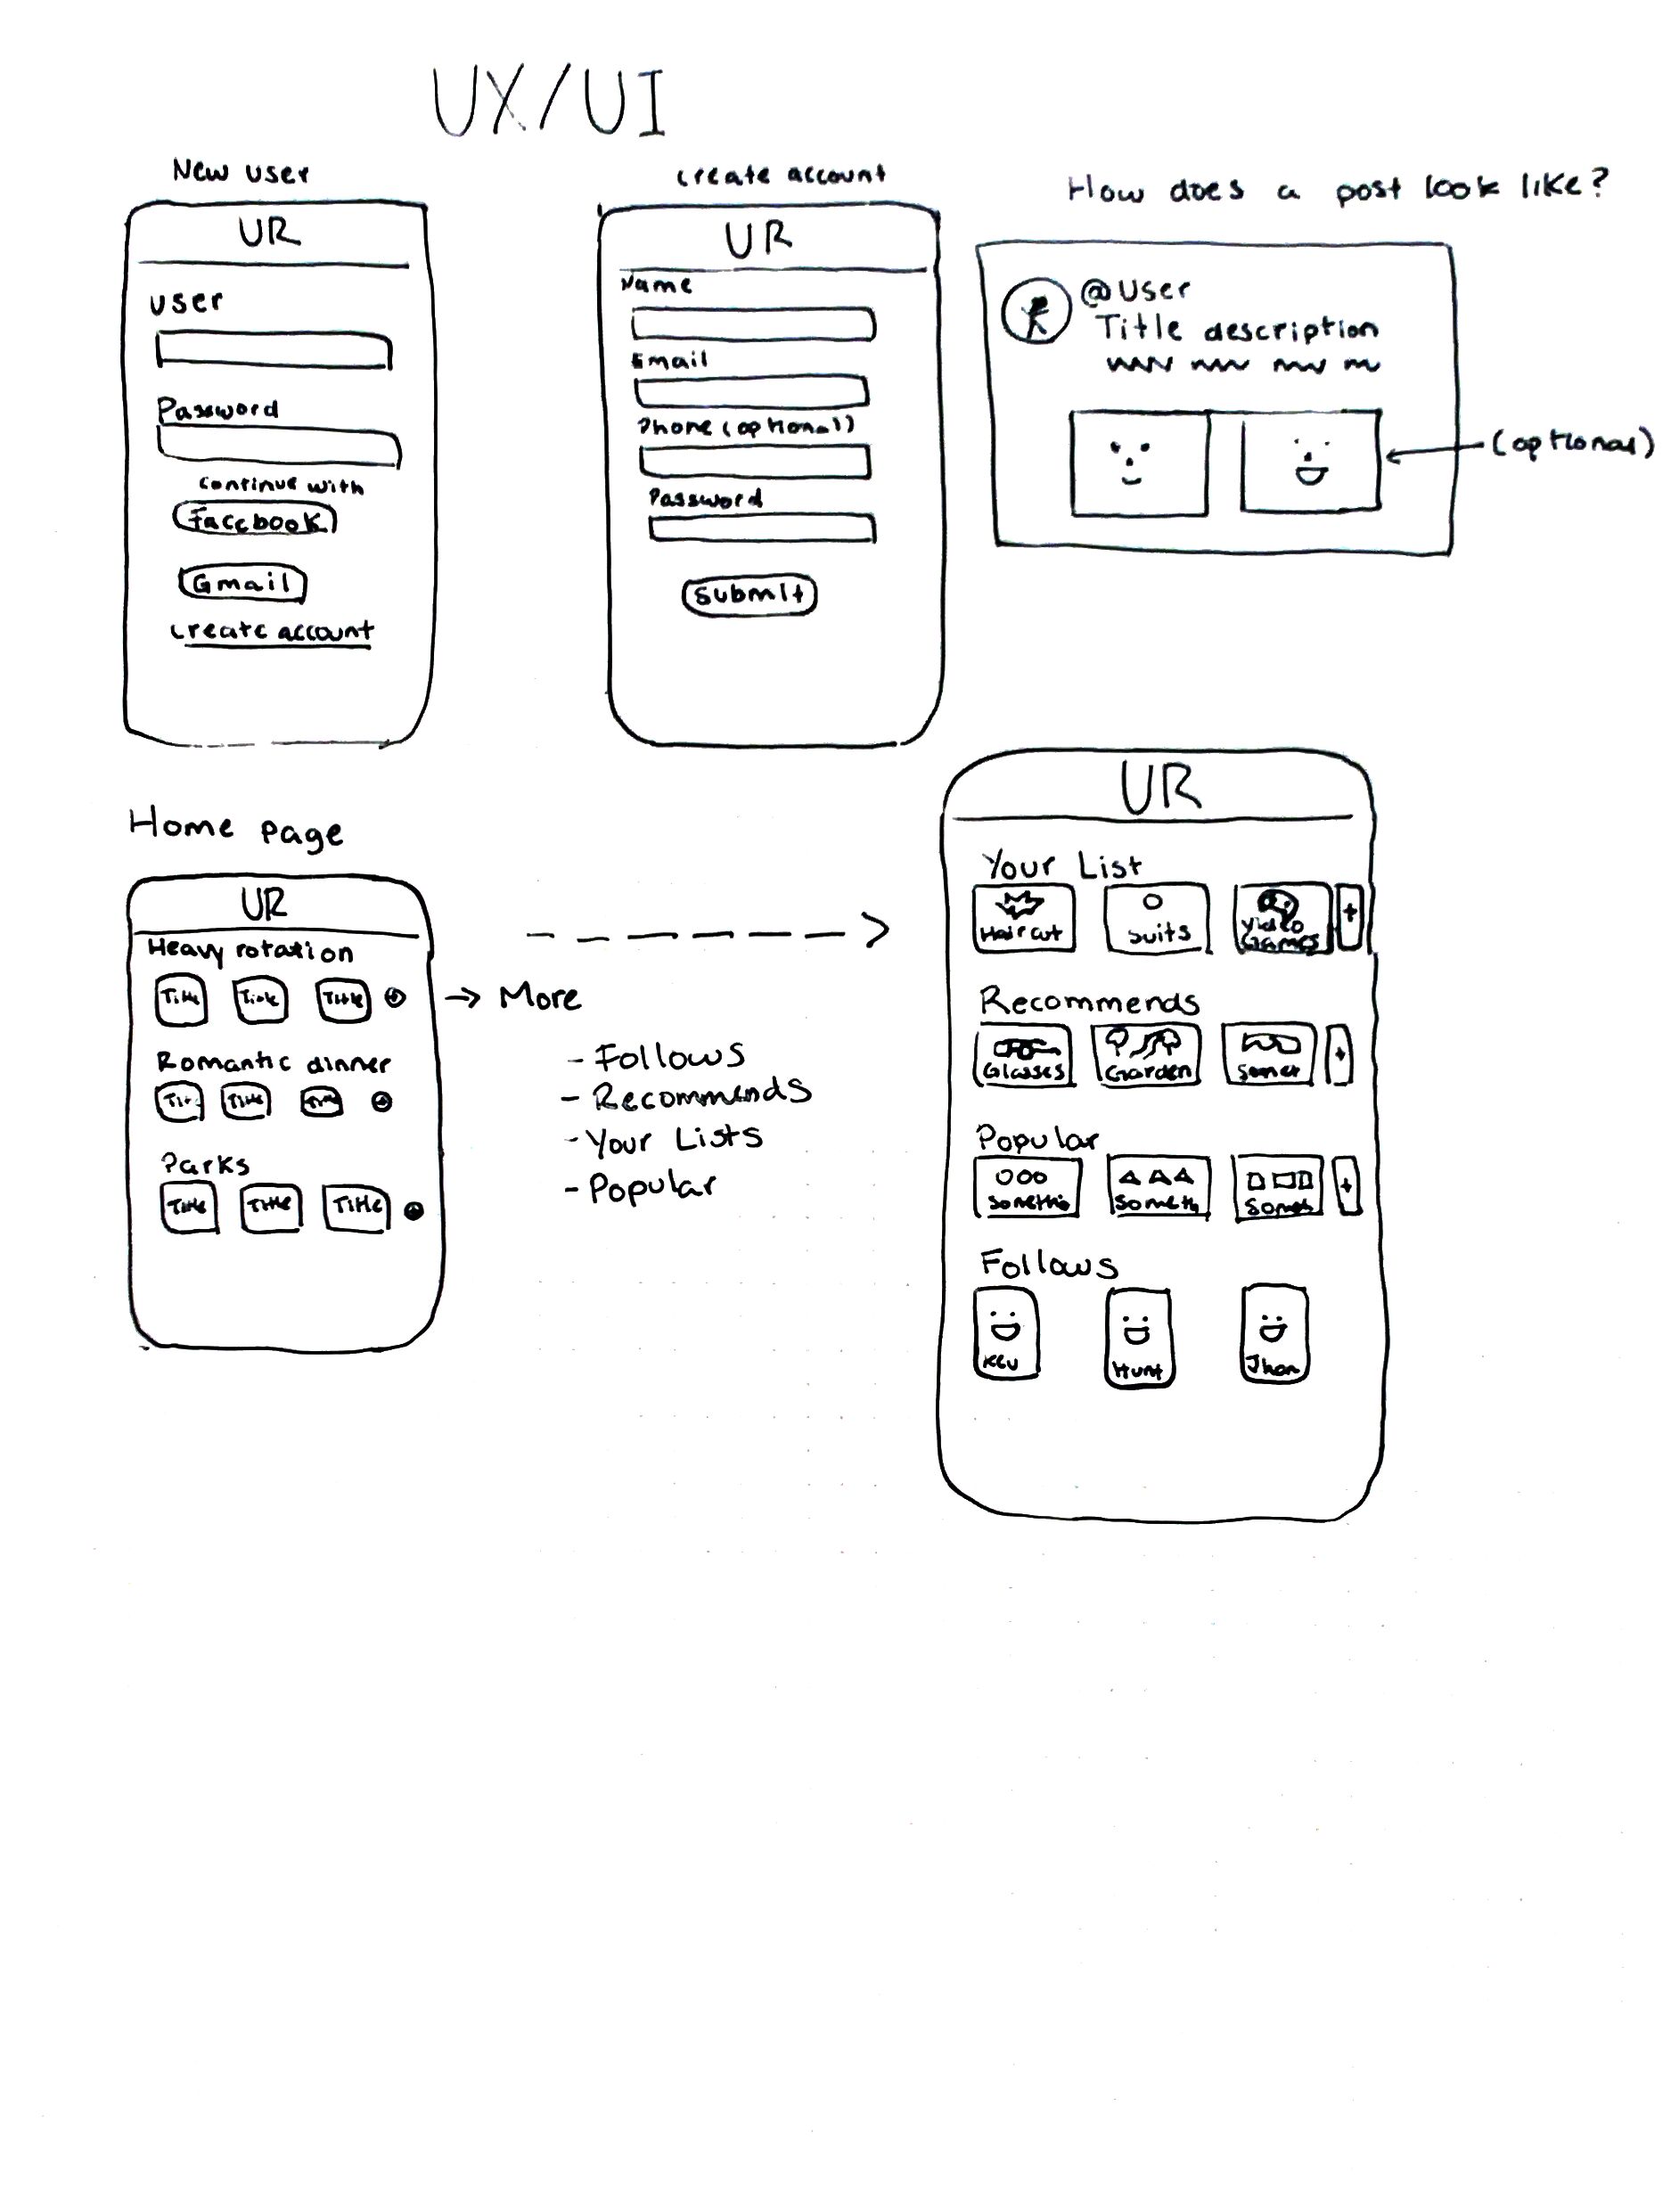 UX/UI
New user
UR
User
Password
continue with
Facebook
Gmail
create account
create account
UR
Name
Email
Phone (optional)
Password
Submit
How does a post look like?
@User
Title description
(optional)
Home page
UR
Heavy rotation
Title Title Title
Romantic dinner
Title Title Title
Parks
Title Title Title
→ More
- Follows
- Recommends
- Your Lists
- Popular
UR
Your List
Haircut Suits Video
Games +
Recommends
Glasses Garden Somet +
Popular
Somethin Someth Someth +
Follows
Kev Hunt Jhon